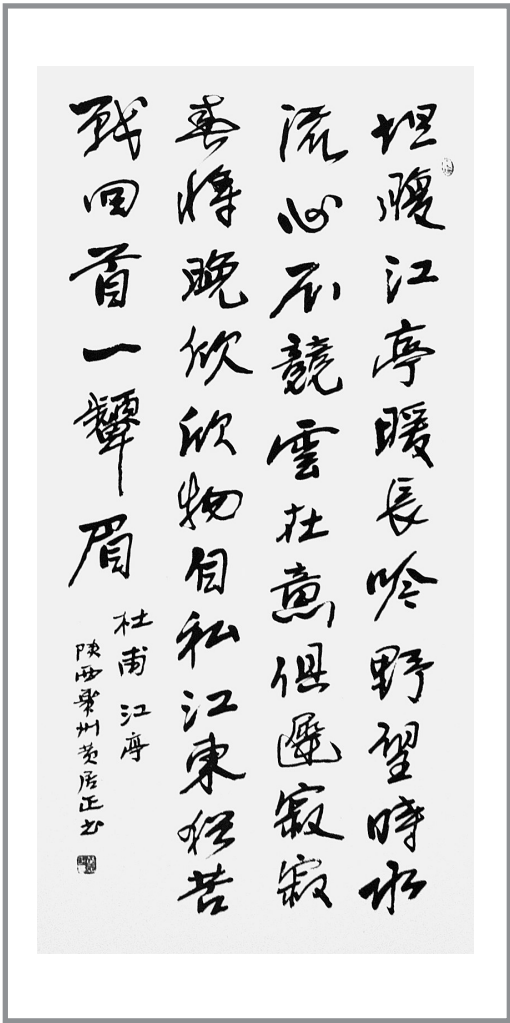 坦腹江亭暖長吟野望時水
流心不競雲在意俱遲寂寂
春將晚欣欣物自私江東猶苦
戰回首一顰眉
杜甫江亭
陝西州黄居正书